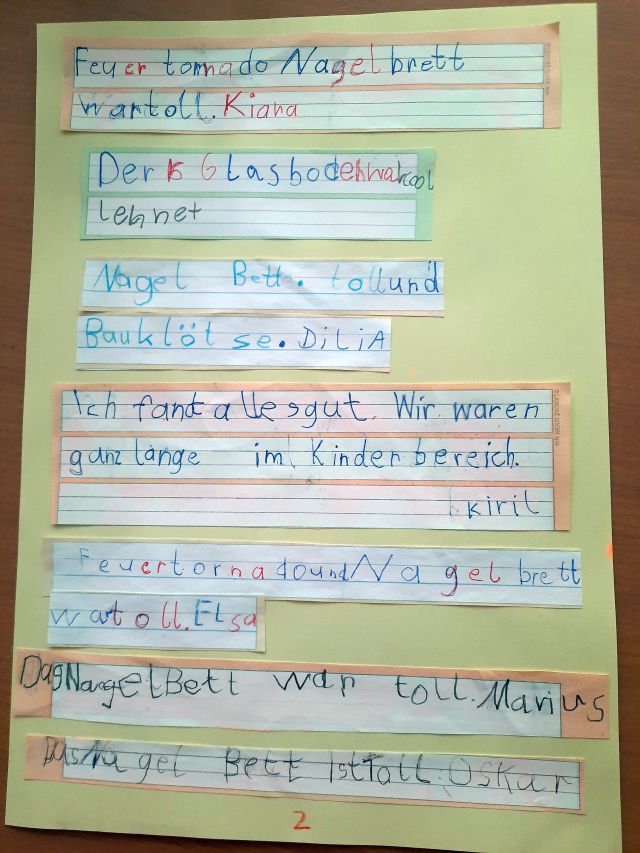 Feuer tornado Nagelbrett
War toll. Kiana
Der Glasbodenwar cool
Lehnet
Nagel Bett. tollund
Bauklöt se. DiLiA
Ich fand alles gut. Wir waren
ganz lange im Kinderbereich.
Kiril
Feuertornadound Nagel brett
wat oll. Elsa
Das Nagel Bett war toll. Marius
Das Nagel Bett Ist Toll. Oskar
2